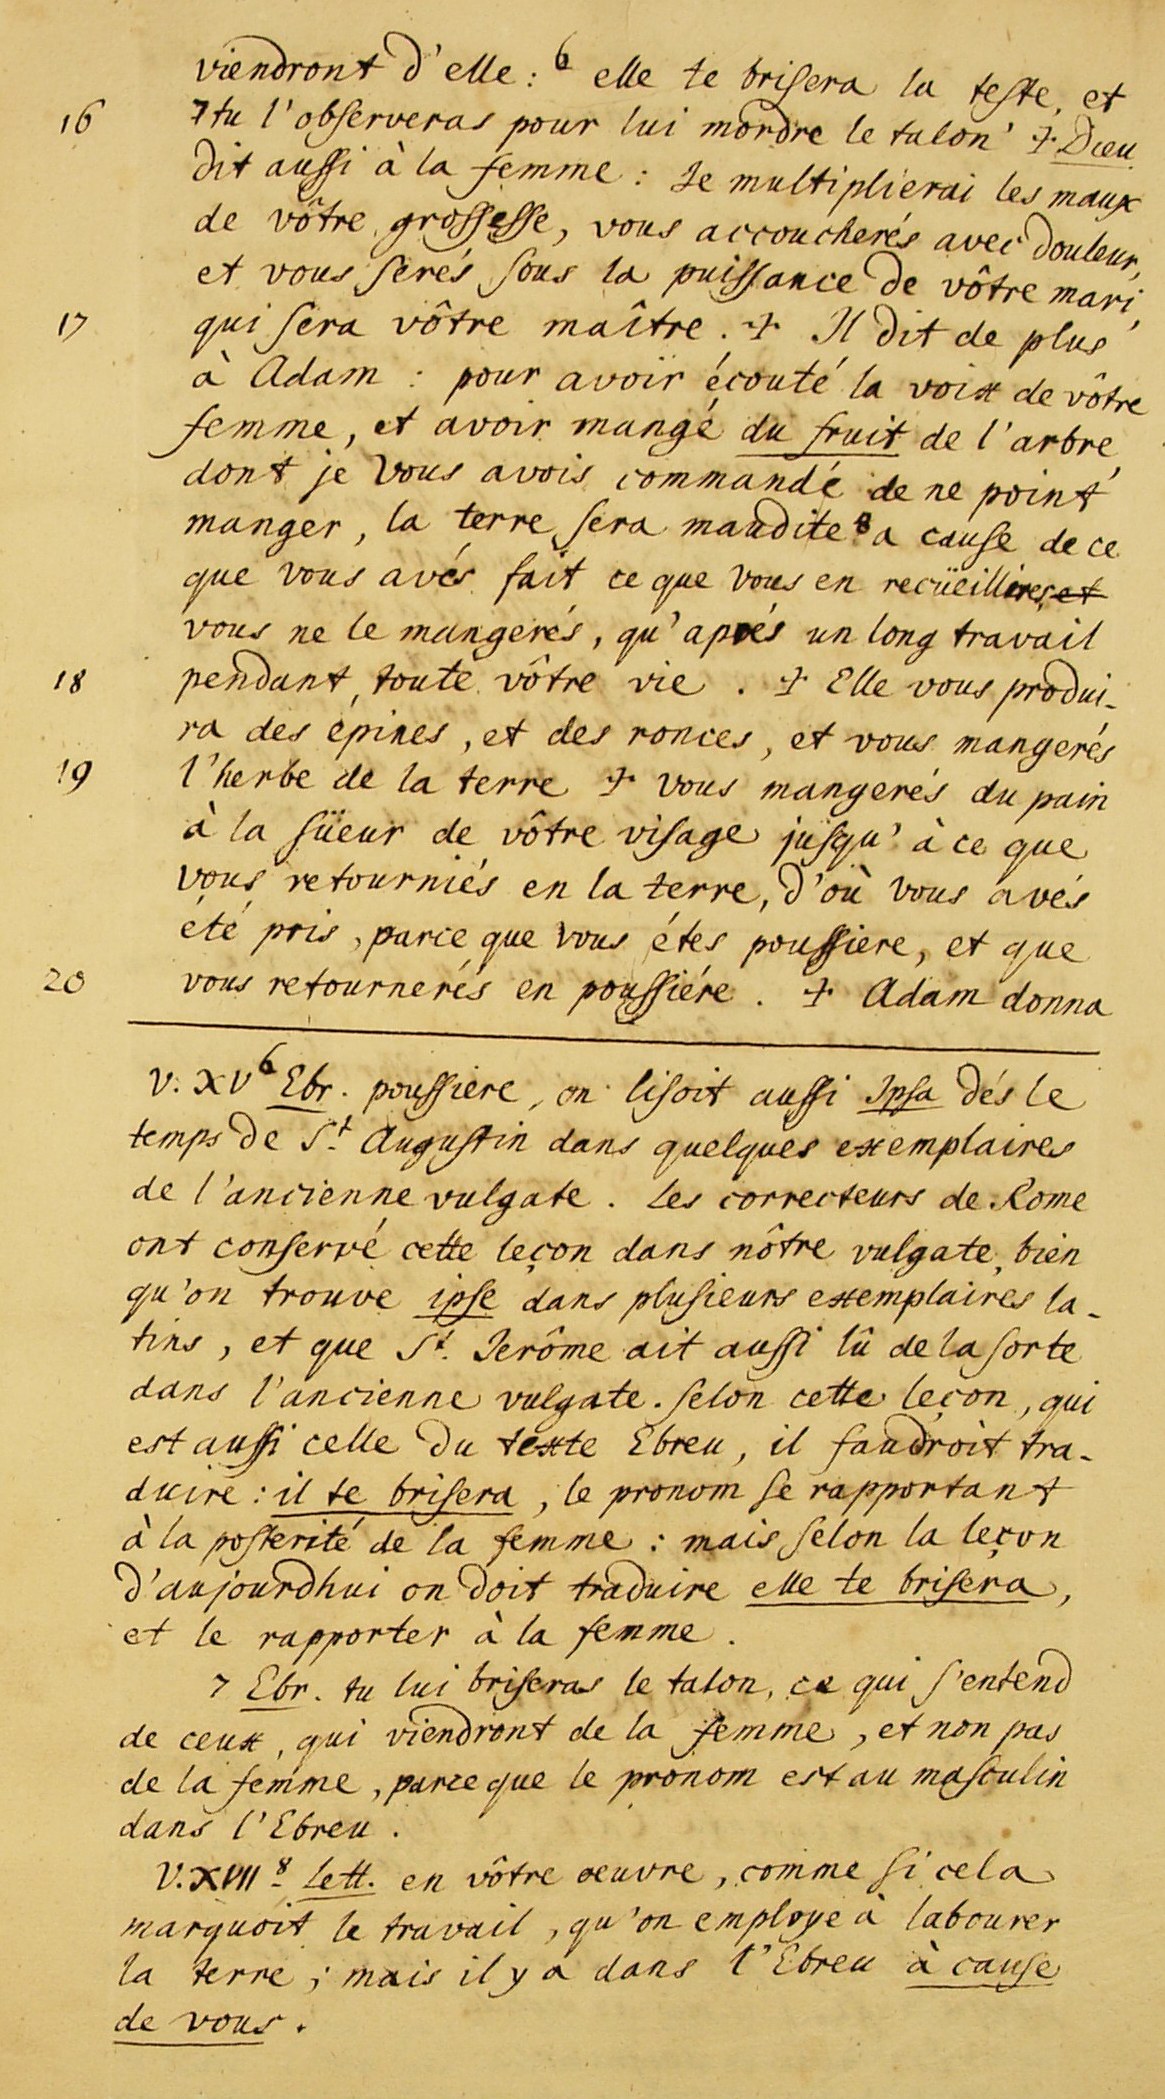 viendront d'elle : 6 elle te brisera la teste, et
16 7 tu l'observeras pour lui mordre le talon' ✢ Dieu
dit aussi à la femme : Je multiplierai les maux
de vôtre grossesse, vous accoucherés avec douleur,
et vous serés sous la puissance de vôtre mari,
17 qui sera vôtre maître. ✢ Il dit de plus
à Adam : pour avoir écouté la voix de vôtre
femme, et avoir mangé du fruit de l'arbre,
dont je vous avois commandé de ne point
manger, la terre sera maudite 8 a cause de ce
que vous avés fait ce que vous en recüeillires, et
vous ne le mangerés, qu'aprés un long travail
18 pendant toute vôtre vie. ✢ Elle vous produi-
ra des épines, et des ronces, et vous mangerés
19 l'herbe de la terre ✢ vous mangerés du pain
à la süeur de vôtre visage jusqu'à ce que
vous retourniés en la terre, d'où vous avés
été pris, parce que vous étes poussiere, et que
20 vous retournerés en poussiére. ✢ Adam donna
V. XV 6 Ebr. poussiere, on lisoit aussi Ipsa dés le
temps de St. Augustin dans quelques exemplaires
de l'ancienne vulgate. Les correcteurs de Rome
ont conservé cette leçon dans nôtre vulgate, bien
qu'on trouve ipse dans plusieurs exemplaires la-
tins, et que St. Jerôme ait aussi lû de la sorte
dans l'ancienne vulgate. Selon cette leçon, qui
est aussi celle du texte Ebreu, il faudroit tra-
duire : il te brisera, le pronom se rapportant
à la posterité de la femme : mais selon la leçon
d'aujourdhui on doit traduire elle te brisera,
et le rapporter à la femme.
7 Ebr. tu lui briseras le talon, ce qui s'entend
de ceux, qui viendront de la femme, et non pas
de la femme, parce que le pronom est au masculin
dans l'Ebreu.
V. XVII 8 Lett. en vôtre oeuvre, comme si cela
marquoit le travail, qu'on employe à labourer
la terre ; mais il y a dans l'Ebreu à cause
de vous.